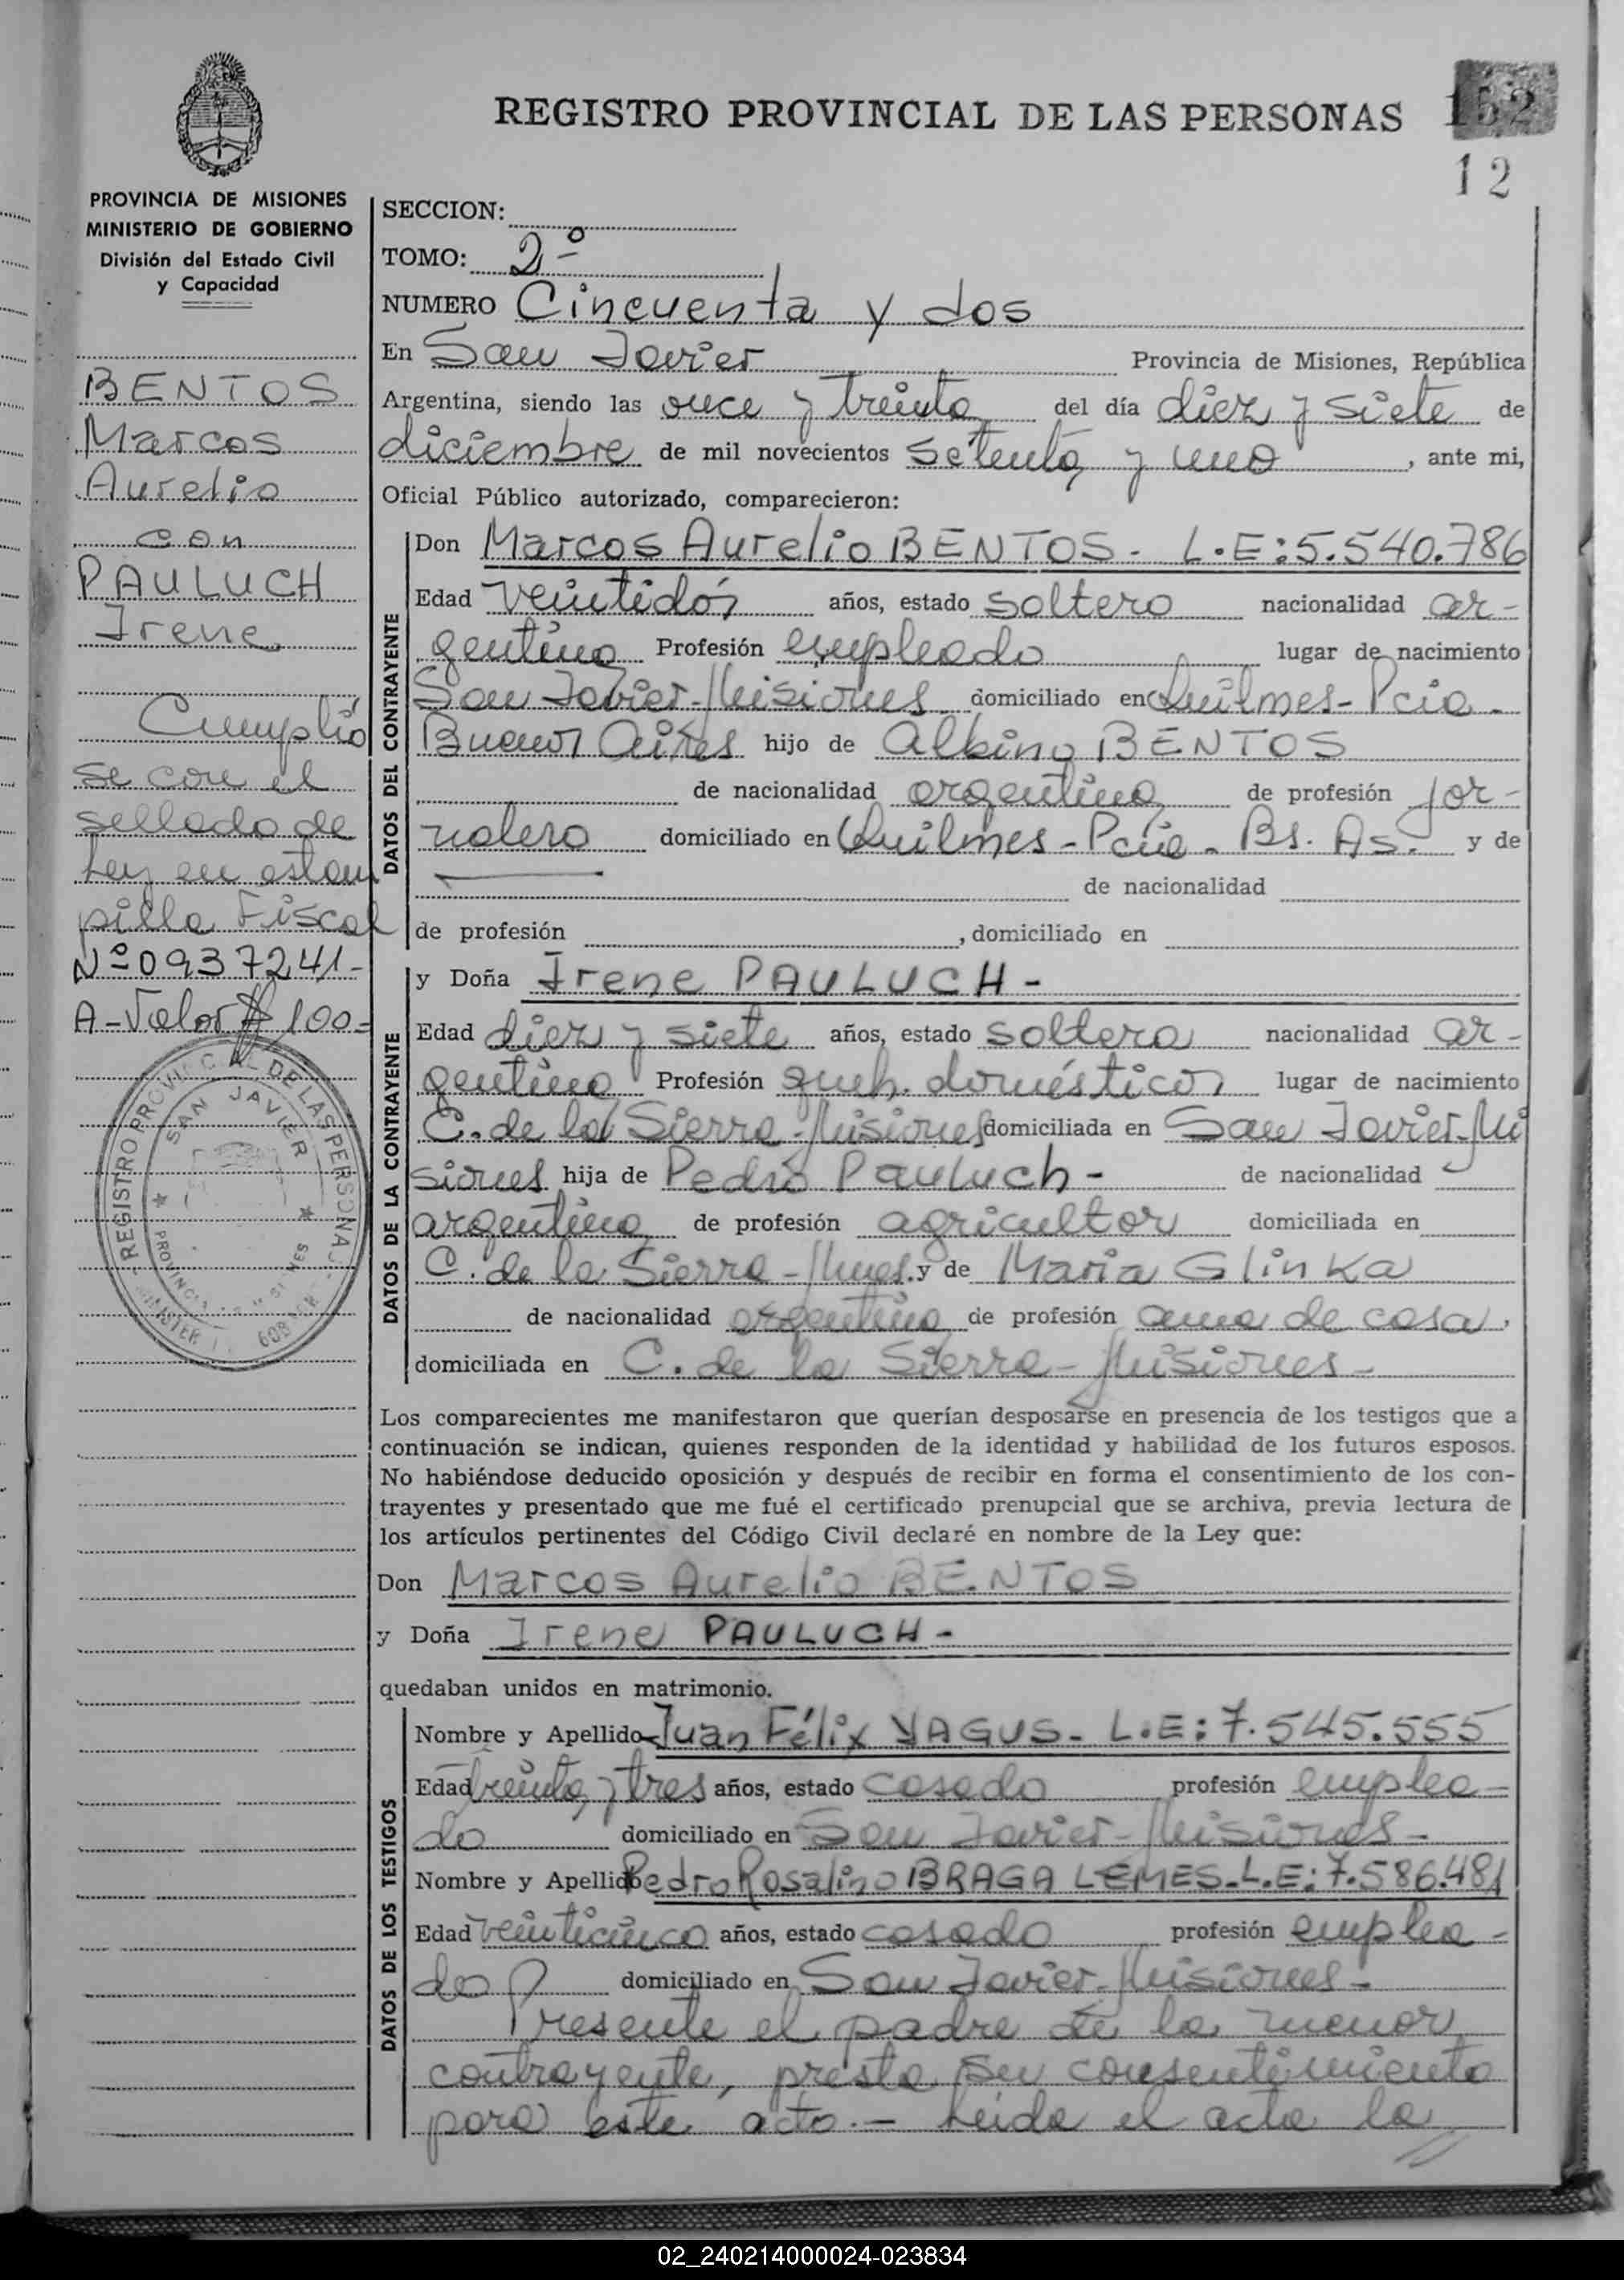 REGISTRO PROVINCIAL DE LAS PERSONAS
152
12
PROVINCIA DE MISIONES
MINISTERIO DE GOBIERNO
División del Estado Civil
y Capacidad
BENTOS
Marcos
Aurelio
con
PAULUCH
Irene
Cumplió
se con el
sellado de
Ley en estam
pilla Fiscal
Nº 0937241-
A-Valor $ 100=
REGISTRO PROVINCIAL DE LAS PERSONAS
SAN JAVIER
SECCION:
TOMO: 2º
NUMERO Cincuenta y dos
En San Javier Provincia de Misiones, República
Argentina, siendo las once y treinta del día diez y siete de
diciembre de mil novecientos setenta y uno, ante mi,
Oficial Público autorizado, comparecieron:
DATOS DEL CONTRAYENTE
Don Marcos Aurelio BENTOS- L.E:5.540.786
Edad veintidós años, estado soltero nacionalidad ar-
gentina Profesión empleado lugar de nacimiento
San Javier-Misiones domiciliado en Quilmes-Pcia-
Buenos Aires hijo de Albino BENTOS
de nacionalidad argentina de profesión jor-
nalero domiciliado en Quilmes-Pcia- Bs. As. y de
de nacionalidad
de profesión , domiciliado en
DATOS DE LA CONTRAYENTE
y Doña Irene PAULUCH-
Edad diez y siete años, estado soltera nacionalidad ar-
gentina Profesión queh. domésticos lugar de nacimiento
C. de la Sierra-Misiones domiciliada en San Javier-Mi
siones hija de Pedro Pauluch- de nacionalidad
argentina de profesión agricultor domiciliada en
C. de la Sierra-Mnes. y de Maria Glinka
de nacionalidad argentina de profesión ama de casa,
domiciliada en C. de la Sierra-Misiones-
Los comparecientes me manifestaron que querían desposarse en presencia de los testigos que a
continuación se indican, quienes responden de la identidad y habilidad de los futuros esposos.
No habiéndose deducido oposición y después de recibir en forma el consentimiento de los con-
trayentes y presentado que me fué el certificado prenupcial que se archiva, previa lectura de
los artículos pertinentes del Código Civil declaré en nombre de la Ley que:
Don Marcos Aurelio BENTOS
y Doña Irene PAULUCH-
quedaban unidos en matrimonio.
DATOS DE LOS TESTIGOS
Nombre y Apellido Juan Félix YAGUS- L.E:7.545.555
Edad treinta y tres años, estado casado profesión emplea-
do domiciliado en San Javier-Misiones-
Nombre y Apellido Pedro Rosalino BRAGA LEMES-L.E:7.586.481
Edad veinticinco años, estado casado profesión emplea-
do domiciliado en San Javier-Misiones-
Presente el padre de la menor
contrayente, presta su consentimiento
para este acto.- Leida el acta la
02_240214000024-023834